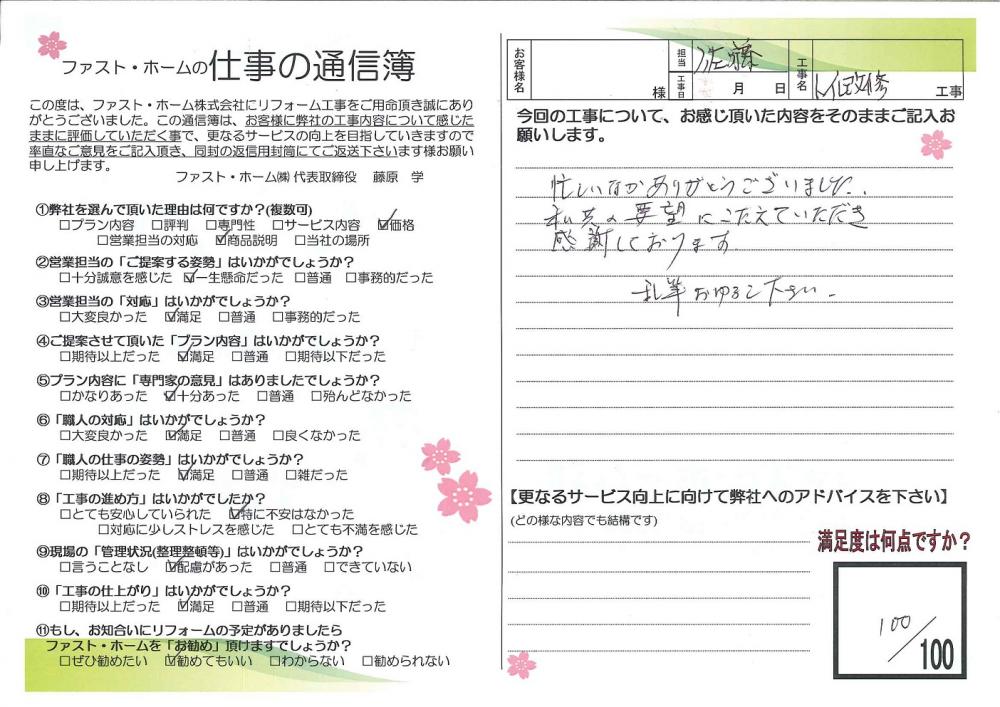 ファスト・ホームの仕事の通信簿
この度は、ファスト・ホーム株式会社にリフォーム工事をご用命頂き誠にあり
がとうございました。この通信簿は、お客様に弊社の工事内容について感じた
ままに評価していただく事で、更なるサービスの向上を目指していきますので
率直なご意見をご記入頂き、同封の返信用封筒にてご返送下さいます様お願い
申し上げます。
ファスト・ホーム㈱ 代表取締役 藤原 学
①弊社を選んで頂いた理由は何ですか?(複数可)
□プラン内容 □評判 □専門性 □サービス内容 ☑価格
□営業担当の対応 ☑商品説明 □当社の場所
②営業担当の「ご提案する姿勢」はいかがでしょうか?
□十分誠意を感じた ☑一生懸命だった □普通 □事務的だった
③営業担当の「対応」はいかがでしょうか?
□大変良かった ☑満足 □普通 □事務的だった
④ご提案させて頂いた「プラン内容」はいかがでしょうか?
□期待以上だった ☑満足 □普通 □期待以下だった
⑤プラン内容に「専門家の意見」はありましたでしょうか?
□かなりあった ☑十分あった □普通 □殆んどなかった
⑥「職人の対応」はいかがでしょうか?
□大変良かった ☑満足 □普通 □良くなかった
⑦「職人の仕事の姿勢」はいかがでしょうか?
□期待以上だった ☑満足 □普通 □雑だった
⑧「工事の進め方」はいかがでしたか?
□とても安心していられた ☑特に不安はなかった
□対応に少しストレスを感じた □とても不満を感じた
⑨現場の「管理状況(整理整頓等)」はいかがでしょうか?
□言うことなし ☑配慮があった □普通 □できていない
⑩「工事の仕上がり」はいかがでしょうか?
□期待以上だった ☑満足 □普通 □期待以下だった
⑪もし、お知合いにリフォームの予定がありましたら
ファスト・ホームを「お勧め」頂けますでしょうか?
□ぜひ勧めたい ☑勧めてもいい □わからない □勧められない
お客様名 様 担当 佐藤 工事日 月 日 工事名 トイレ改修 工事
今回の工事について、お感じ頂いた内容をそのままご記入お
願いします。
忙しいなかありがとうございました。
私共の要望にこたえていただき
感謝しております
乱筆おゆるし下さい。
【更なるサービス向上に向けて弊社へのアドバイスを下さい】
(どの様な内容でも結構です)
満足度は何点ですか?
100/100